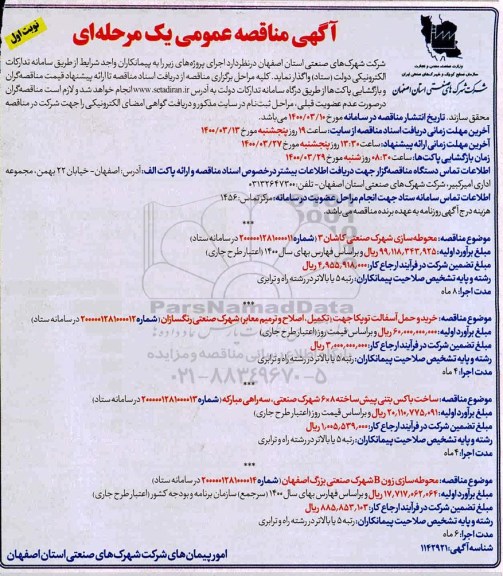 آگهی مناقصه عمومی یک مرحله‌ای
نوبت اول
وزارت صنعت، معدن و تجارت
سازمان صنایع کوچک و شهرکهای صنعتی ایران
شرکت شهرک های صنعتی استان اصفهان
شرکت شهرک‌های صنعتی استان اصفهان درنظر دارد اجرای پروژه‌های زیر را به پیمانکاران واجد شرایط از طریق سامانه تدارکات
الکترونیکی دولت (ستاد) واگذار نماید. کلیه مراحل برگزاری مناقصه از دریافت اسناد مناقصه تا ارائه پیشنهاد قیمت مناقصه‌گران
و بازگشایی پاکت‌ها از طریق درگاه سامانه تدارکات دولت به آدرس www.setadiran.ir انجام خواهد شد و لازم است مناقصه‌گران
درصورت عدم عضویت قبلی، مراحل ثبت‌نام در سایت مذکور و دریافت گواهی امضای الکترونیکی را جهت شرکت در مناقصه
محقق سازند. تاریخ انتشار مناقصه در سامانه مورخ ۱۴۰۰/۰۳/۱۰ می‌باشد.
آخرین مهلت زمانی دریافت اسناد مناقصه از سایت: ساعت ۱۹ روز پنجشنبه مورخ ۱۴۰۰/۰۳/۱۳
آخرین مهلت زمانی ارائه پیشنهاد: ساعت ۱۳:۳۰ روز پنجشنبه مورخ ۱۴۰۰/۰۳/۲۷
زمان بازگشایی پاکت‌ها: ساعت ۰۸:۳۰ روز شنبه مورخ ۱۴۰۰/۰۳/۲۹
اطلاعات تماس دستگاه مناقصه‌گزار جهت دریافت اطلاعات بیشتر درخصوص اسناد مناقصه و ارائه پاکت الف: آدرس: اصفهان- خیابان ۲۲ بهمن، مجموعه
اداری امیرکبیر، شرکت شهرک‌های صنعتی استان اصفهان- تلفن: ۰۳۱۳۲۶۴۷۳۰۰
اطلاعات تماس سامانه ستاد جهت انجام مراحل عضویت در سامانه: مرکز تماس: ۱۴۵۶
هزینه درج آگهی روزنامه به عهده برنده مناقصه می‌باشد.
***
موضوع مناقصه: محوطه‌سازی شهرک صنعتی کاشان ۳ (شماره ۲۰۰۰۰۰۱۲۸۱۰۰۰۰۱۱ در سامانه ستاد)
مبلغ برآورد اولیه: ۹۹,۱۱۸,۳۴۳,۹۲۵ ریال و براساس فهارس بهای سال ۱۴۰۰ (اعتبار طرح جاری)
مبلغ تضمین شرکت در فرآیند ارجاع کار: ۴,۹۵۵,۹۱۸,۰۰۰ ریال
رشته و پایه تشخیص صلاحیت پیمانکاران: رتبه ۵ یا بالاتر در رشته راه و ترابری
مدت اجرا: ۸ ماه
***
موضوع مناقصه: خرید و حمل آسفالت توپکا جهت (تکمیل، اصلاح و ترمیم معابر) شهرک صنعتی رنگسازان (شماره ۲۰۰۰۰۰۱۲۸۱۰۰۰۰۱۲ در سامانه ستاد)
مبلغ برآورد اولیه: ۶۰,۰۰۰,۰۰۰,۰۰۰ ریال و براساس قیمت روز (اعتبار طرح جاری)
مبلغ تضمین شرکت در فرآیند ارجاع کار: ۳,۰۰۰,۰۰۰,۰۰۰ ریال
رشته و پایه تشخیص صلاحیت پیمانکاران: رتبه ۵ یا بالاتر در رشته راه و ترابری
مدت اجرا: ۴ ماه
ParsNamadData
۰۲۱-۸۸۳۴۹۶۷۰-۵
***
موضوع مناقصه: ساخت باکس بتنی پیش ساخته ۶۰۸ شهرک صنعتی، سه‌راهی مبارکه (شماره ۲۰۰۰۰۰۱۲۸۱۰۰۰۰۱۳ در سامانه ستاد)
مبلغ برآورد اولیه: ۲۰,۱۱۰,۷۷۵,۰۹۱ ریال و براساس قیمت روز (اعتبار طرح جاری)
مبلغ تضمین شرکت در فرآیند ارجاع کار: ۱,۰۰۵,۵۳۹,۰۰۰ ریال
رشته و پایه تشخیص صلاحیت پیمانکاران: رتبه ۵ یا بالاتر در رشته راه و ترابری
مدت اجرا: ۴ ماه
***
موضوع مناقصه: محوطه‌سازی زون B شهرک صنعتی بزرگ اصفهان (شماره ۲۰۰۰۰۰۱۲۸۱۰۰۰۰۱۴ در سامانه ستاد)
مبلغ برآورد اولیه: ۱۷,۷۱۷,۰۶۲,۰۶۴ ریال و براساس فهارس بهای سال ۱۴۰۰ (سرجمع) سازمان برنامه و بودجه کشور (اعتبار طرح جاری)
مبلغ تضمین شرکت در فرآیند ارجاع کار: ۸۸۵,۸۵۳,۱۰۳ ریال
رشته و پایه تشخیص صلاحیت پیمانکاران: رتبه ۵ یا بالاتر در رشته راه و ترابری
مدت اجرا: ۶ ماه
شناسه آگهی: ۱۱۴۲۹۲۱
امور پیمان‌های شرکت شهرک‌های صنعتی استان اصفهان